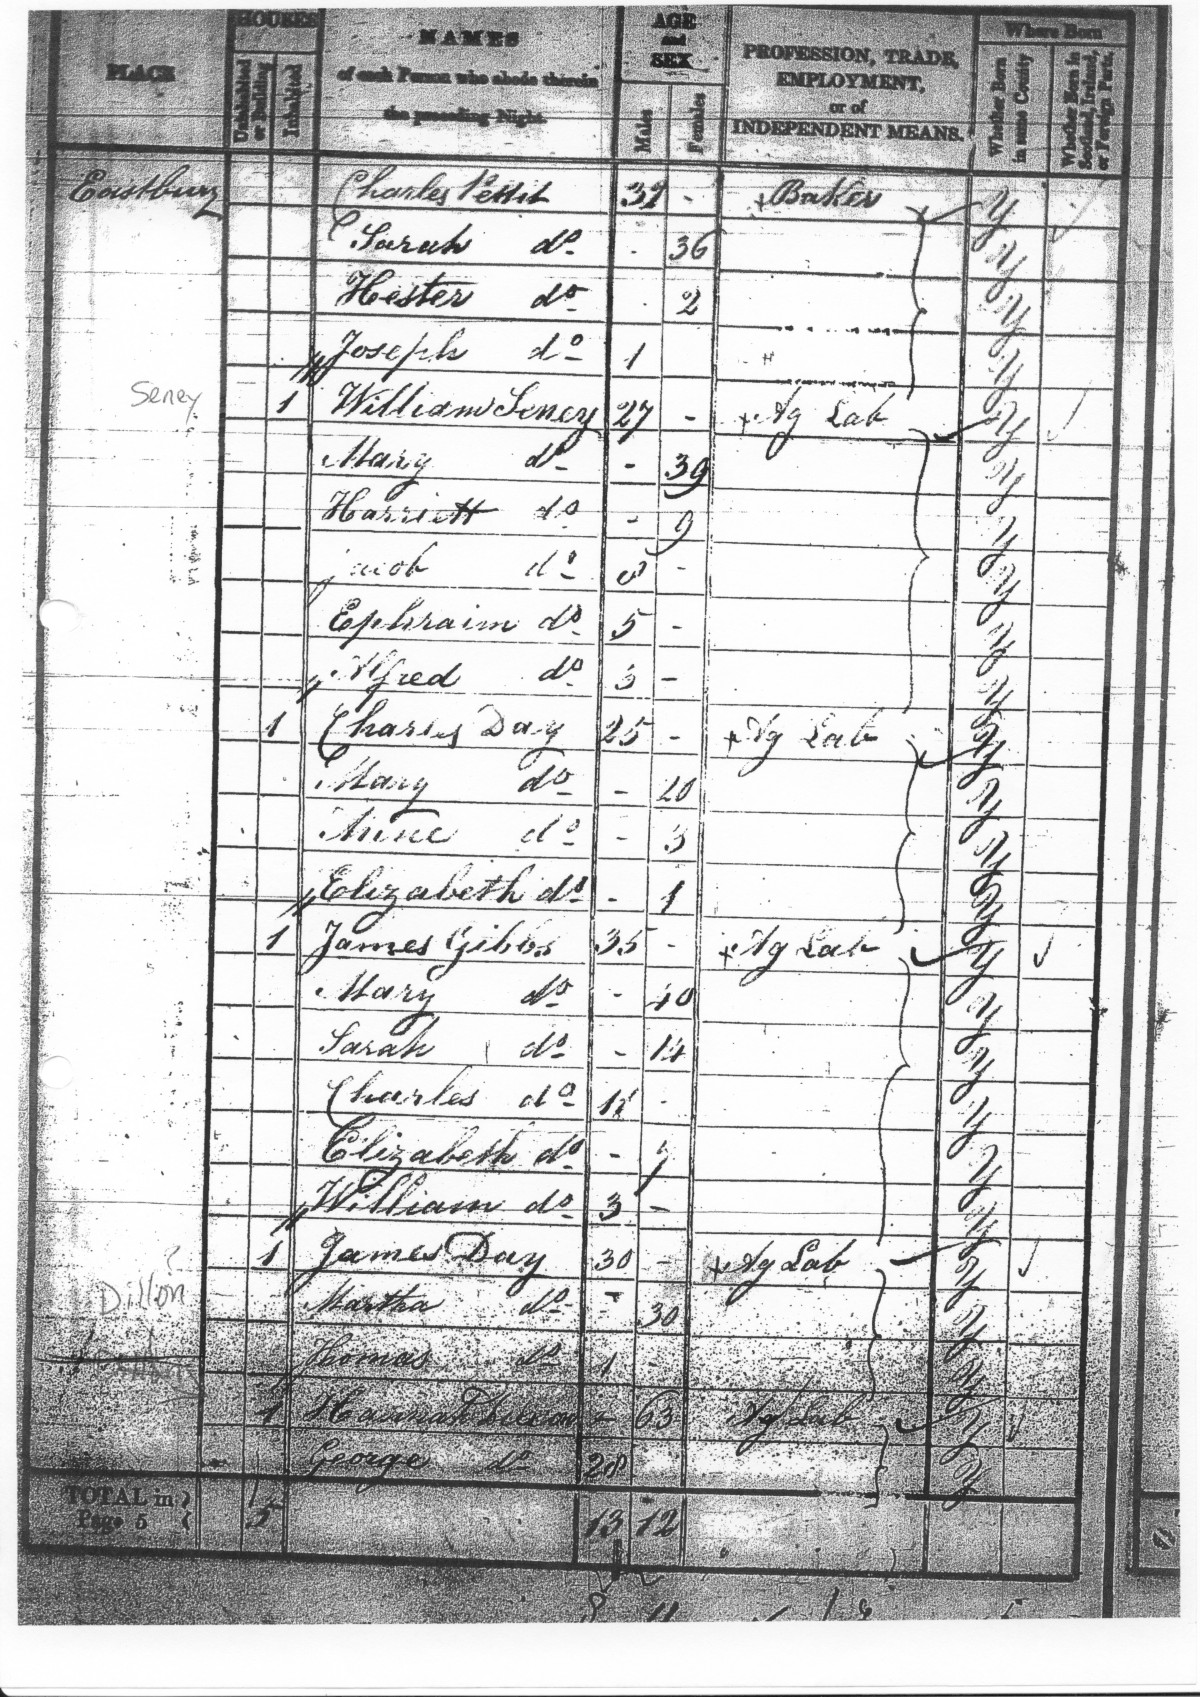 PLACE
HOUSES
Uninhabited or Building
Inhabited
NAMES
of each Person who abode therein
the preceding Night.
AGE
and
SEX
Males
Females
PROFESSION, TRADE,
EMPLOYMENT,
or of
INDEPENDENT MEANS.
Where Born
Whether Born in same County
Whether Born in Scotland, Ireland, or Foreign Parts.
Eastbury Charles Pettit 32 - Baker Y
Sarah do - 36 Y
Hester do - 2 Y
Joseph do 1 Y
Seney 1 William Seney 27 - Ag Lab Y
Mary do - 39 Y
Harriett do - 9 Y
Jacob do 8 - Y
Ephraim do 5 - Y
Alfred do 3 - Y
1 Charles Day 25 - Ag Lab Y
Mary do - 20 Y
Anne do - 3 Y
Elizabeth do - 1 Y
1 James Gibbs 35 - Ag Lab Y
Mary do - 40 Y
Sarah do - 14 Y
Charles do - Y
Elizabeth do - 7 Y
William do 3 - Y
1 James Day 30 - Ag Lab Y
Dillon ? Martha do - 30 Y
Thomas do 1 - Y
1 Hannah - 63 Ag Lab Y
George do 28 Y
TOTAL in Page 5 5 13 12